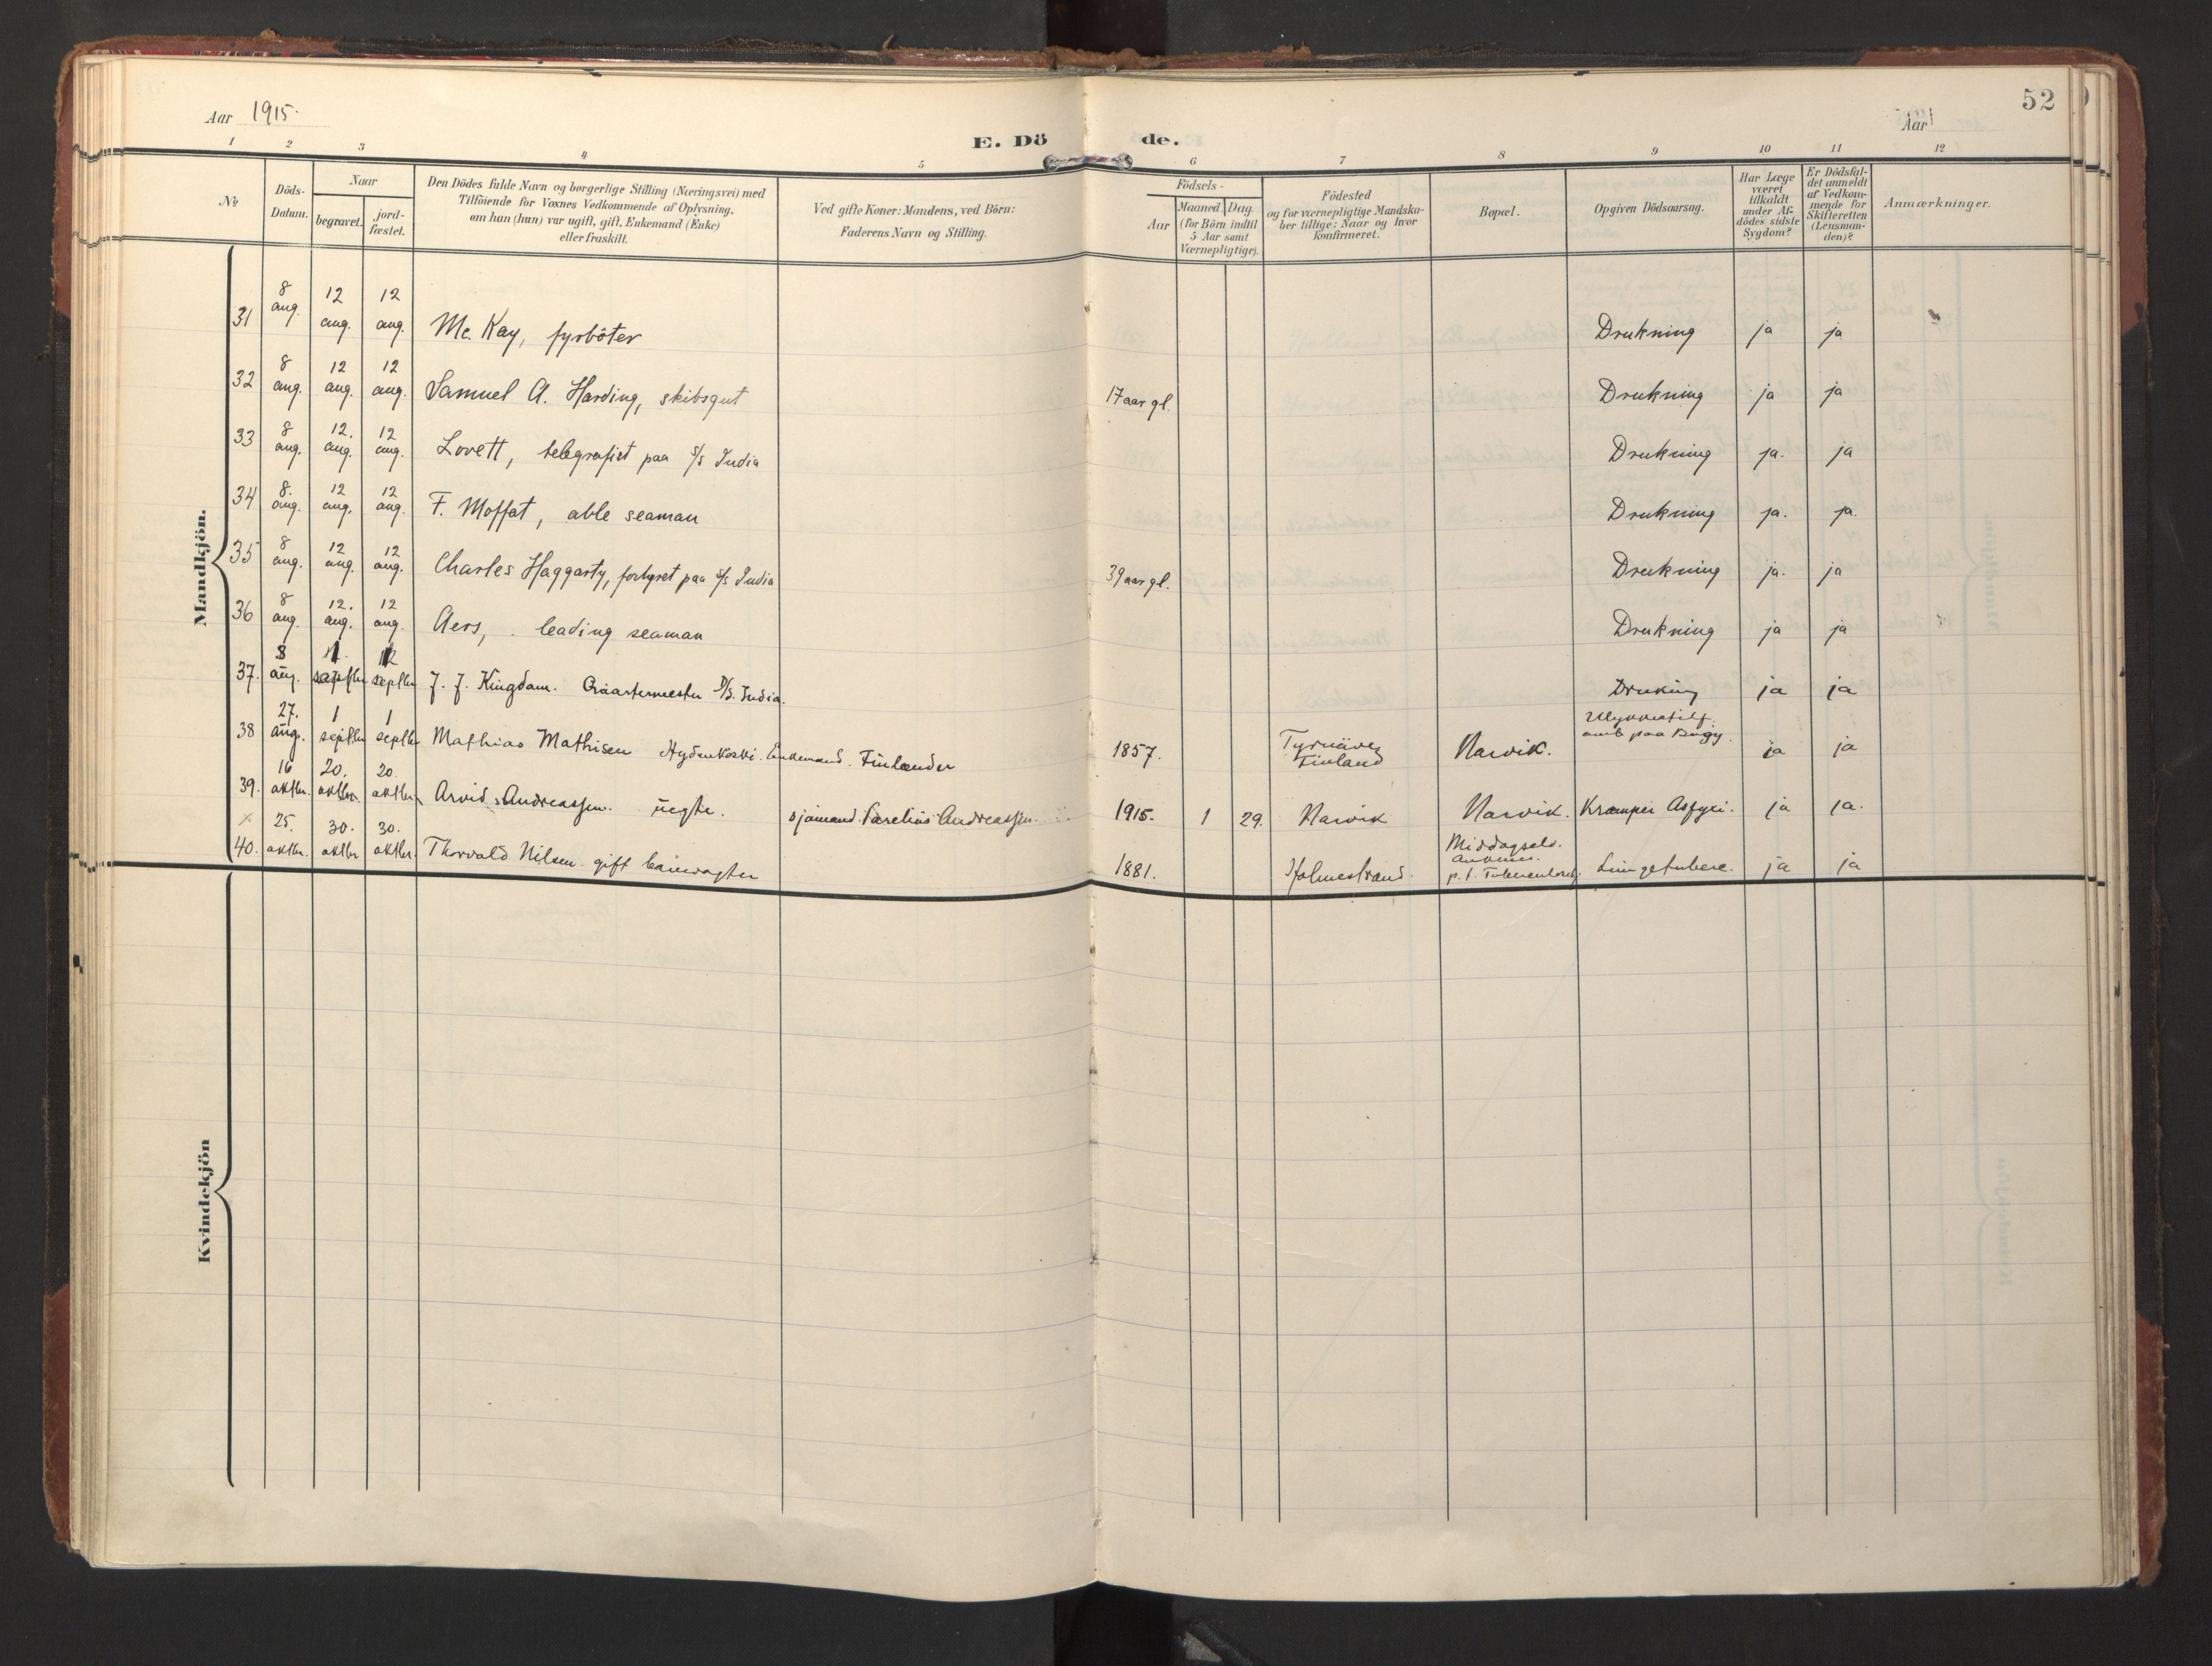 52
Aar 1915.
Aar
E. Dö de.
1 2 3 4 5 6 7 8 9 10 11 12
№
Döds-
Datum.
Naar
begravet.
jord-
fæstet.
Den Dödes fulde Navn og borgerlige Stilling (Næringsvei) med
Tilföiende for Voxnes Vedkommende af Oplysning,
om han (hun) var ugift, gift, Enkemand (Enke)
eller fraskilt.
Ved gifte Koner: Mandens, ved Börn:
Faderens Navn og Stilling.
Födsels-
Aar
Maaned. Dag.
(for Börn indtil
5 Aar samt
Værnepligtige).
Födested
og for værnepligtige Mandska-
ber tillige: Naar og hvor
konfirmeret.
Bopæl.
Opgiven Dödsaarsag.
Har Læge
været
tilkaldt
under Af-
dödes sidste
Sygdom?
Er Dödsfal-
det anmeldt
af Vedkom-
mende for
Skifteretten
(Lensman-
den)?
Anmærkninger.
Mandkjön.
31 8 aug. 12 aug. 12 aug. Mc. Kay, fyrböter Drukning ja ja
32 8 aug. 12 aug. 12 aug. Samuel A. Harding, skibsgut 17 aar gl. Drukning ja ja
33 8 aug. 12. aug. 12 aug. Lovett, telegrafist paa s/s India Drukning ja. ja
34 8. aug. 12 aug. 12 aug. F. Moffat, able seaman Drukning ja. ja.
35 8 aug. 12 aug. 12 aug. Charles Haggarty, paa s/s India 39 aar gl. Drukning ja. ja
36 8 aug. 12. aug. 12 aug. Aers, leading seaman Drukning ja ja
37. 8 aug. septbr septbr J. J. Kingdam. D/S. India. ja ja
38 27. aug. 1 septbr 1 septbr Mathias Mathisen Enkemand. Finlænder 1857. Tyrnäve Finland Narvik. ja ja
39. 16 oktbr. 20. oktbr. 20. oktbr. Arvid Andreassen. uegte. sjömand. Andreassen. 1915. 1 29. Narvik Narvik. Kramper Asfyxi. ja ja.
40. 25. oktbr. 30. oktbr 30. oktbr. Thorvald Nilsen. gift banevogter 1881. Holmestrand. Middagselv. Ankenes. p.t. ja ja
Kvindekjön